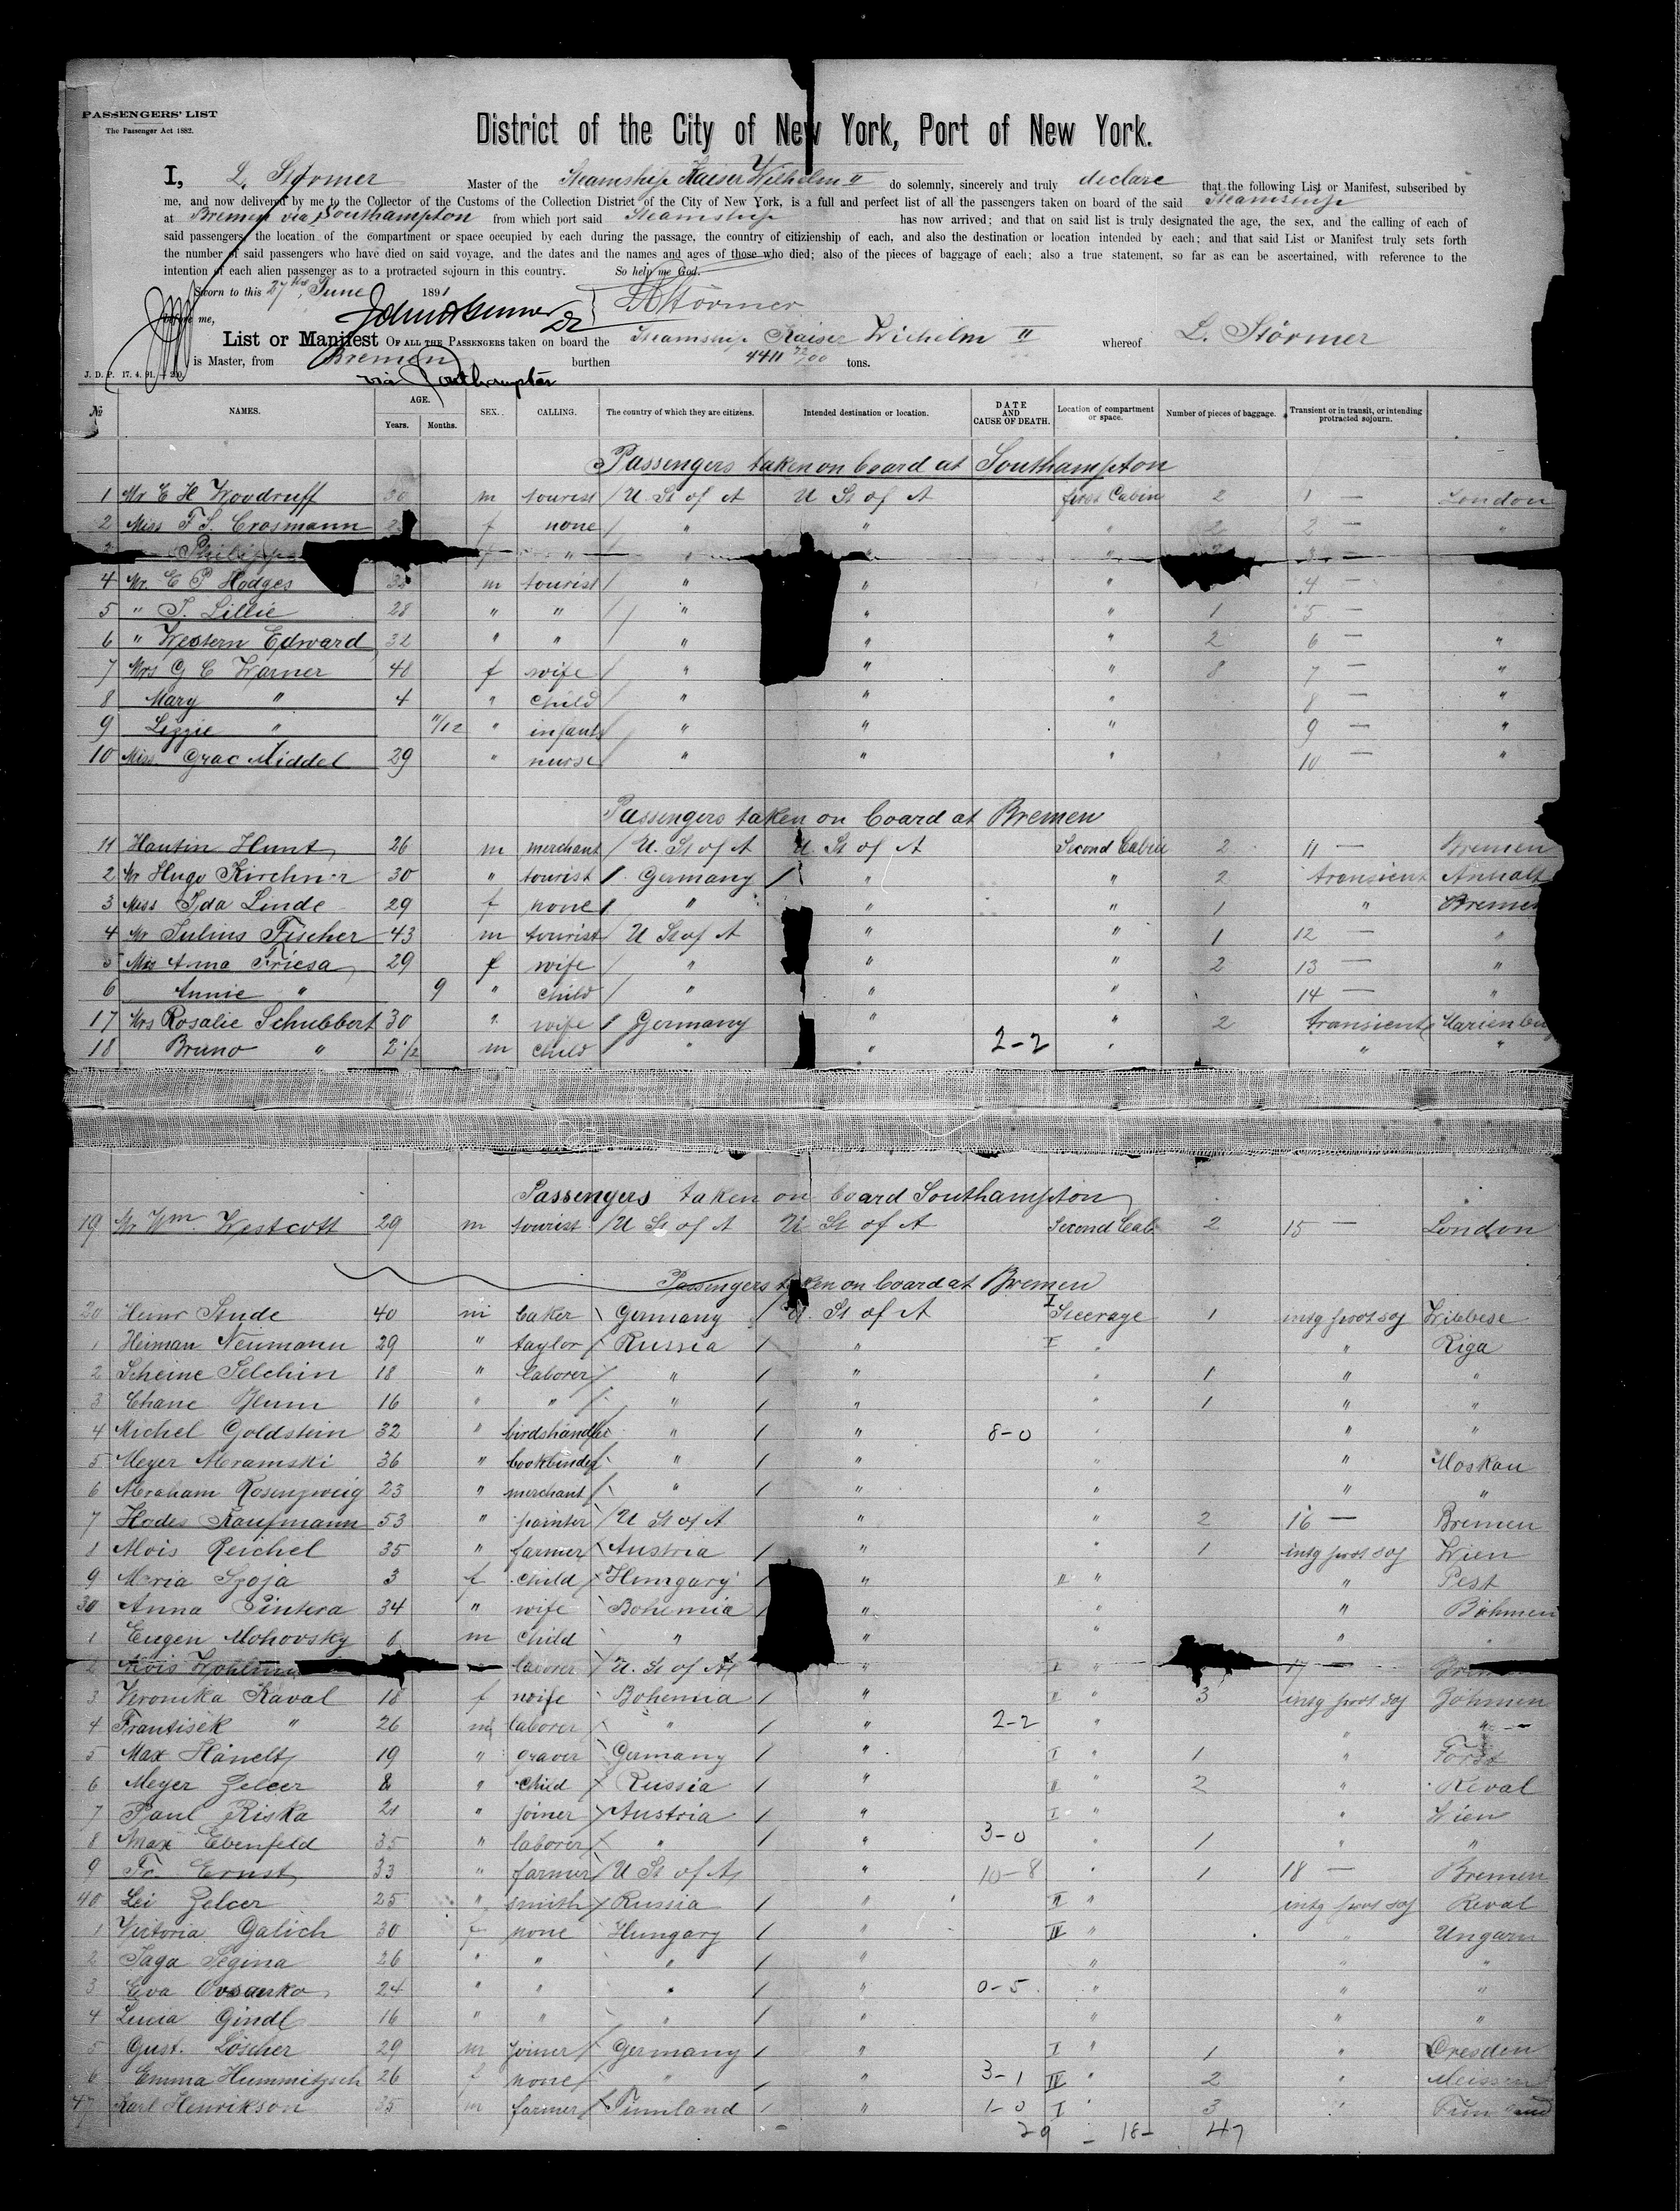 PASSENGERS' LIST
The Passenger Act 1882.
District of the City of New York, Port of New York.
I, L. Störmer Master of the Steamship Kaiser Wilhelm II do solemnly, sincerely and truly declare that the following List or Manifest, subscribed by
me, and now delivered by me to the Collector of the Customs of the Collection District of the City of New York, is a full and perfect list of all the passengers taken on board of the said Steamship
at Bremen via Southampton from which port said Steamship has now arrived; and that on said list is truly designated the age, the sex, and the calling of each of
said passengers, the location of the compartment or space occupied by each during the passage, the country of citizienship of each, and also the destination or location intended by each; and that said List or Manifest truly sets forth
the number of said passengers who have died on said voyage, and the dates and the names and ages of those who died; also of the pieces of baggage of each; also a true statement, so far as can be ascertained, with reference to the
intention of each alien passenger as to a protracted sojourn in this country. So help me God.
Sworn to this 27th June 1891 L Störmer
before me,
List or Manifest OF ALL THE PASSENGERS taken on board the Steamship Kaiser Wilhelm II whereof L. Störmer
is Master, from Bremen burthen 4411 72/00 tons.
J. D. P. 17. 4. 91.
via Southampton
№ NAMES. AGE. Years. Months. SEX. CALLING. The country of which they are citizens. Intended destination or location. DATE AND CAUSE OF DEATH. Location of compartment or space. Number of pieces of baggage. Transient or in transit, or intending protracted sojourn.
Passengers taken on board at Southampton
1 Mr E H Woodruff 30 m tourist / U. St of A U St of A first Cabin 2 1 — London
2 Miss F S. Crosmann f none / " " " 2 2 — "
Philipp f " " " 3 —
4 Mr. E P Hodges m tourist / " " " 4 —
5 " J. Lillie 28 " " / " " " 1 5 —
6 " Western Edward 32 " " / " " " 2 6 — "
7 Mrs G C Warner 40 f wife / " " " 8 7 — "
8 Mary " 4 " child / " " " 8 — "
9 Lizzie " 11/12 " infant / " " " 9 — "
10 Miss Grac Middel 29 " nurse / " " " 10 — "
Passengers taken on board at Bremen
11 Hautin Hunt 26 m merchant / U. St of A U. St of A Second Cabin 2 11 — Bremen
2 Mr Hugo Kirchner 30 " tourist / Germany / " " 2 transient Anhalt
3 Miss Ida Linde 29 f none / " " " 1 " Bremen
4 Mr Julius Fischer 43 m tourist U St of A " " 1 12 — "
5 Mrs Anna Friesa 29 f wife / " " " 2 13 — "
6 Annie " 9 " child / " " " 14 — "
17 Mrs Rosalie Schubbert 30 " wife / Germany " " 2 transient Marienburg
18 Bruno " 2 1/2 m child / " " 2-2 " " "
Passengers taken on board Southampton
19 Mr Wm. Westcott 29 m tourist / U St of A U St of A Second Cab. 2 15 — London
Passengers taken on board at Bremen
20 Heinr Stude 40 m baker Germany / U. St of A I Steerage 1 intg prot soj Wibbese
1 Heiman Neumann 29 " taylor / Russia / " I " " Riga
2 Scheine Selchin 18 " laborer / " / " " 1 " "
3 Chane Blum 16 " " / " / " " 1 " "
4 Michel Goldstein 32 " birdshandler " / " 8-0 " " "
5 Meyer Abramski 36 " bookbinder " / " " " Moskau
6 Abraham Rosenzweig 23 " merchant / " / " " " "
7 Hodes Kaufmann 53 " painter / U St of A " " 2 16 — Bremen
8 Alois Reichel 35 " farmer / Austria / " " 1 intg prot soj Wien
9 Maria Szoja 3 f child / Hungary / " II " " Pest
30 Anna Sintera 34 " wife Bohemia / " " " Böhmen
1 Eugen Mohovsky 6 m child " " " " "
2 Alois laborer / U. St of A " I " 17 —
3 Veronika Kaval 18 f wife Bohemia / " II " 3 intg prot soj Böhmen
4 Frantisek " 26 m laborer / " / " 2-2 " " "
5 Max Hänelt 19 " graver Germany / " I " 1 " Forst
6 Meyer Zelcer 8 " child / Russia / " II " 2 " Reval
7 Paul Riska 21 " joiner / Austria / " I " " Wien
8 Max Ebenfeld 35 " laborer / " / " 3-0 " 1 " "
9 Fr. Ernst 33 " farmer / U St of A " 10-8 " 1 18 — Bremen
40 Lei Zelcer 25 " smith / Russia / " II " intg prot soj Reval
1 Victoria Galich 30 f none Hungary / " IV " " Ungarn
2 Jaga Segina 26 " " " / " " " "
3 Eva Ovsanka 24 " " " / " 0-5 " " "
4 Lucia Gindl 16 " " " / " " " "
5 Gust. Löscher 29 m joiner / Germany / " I " 1 " Dresden
6 Emma Hummitzsch 26 f none / " / " 3-1 IV " 2 " Meissen
47 Karl Henrikson 35 m farmer / Finnland / " 1-0 I " 3 "
29 - 18 - 47